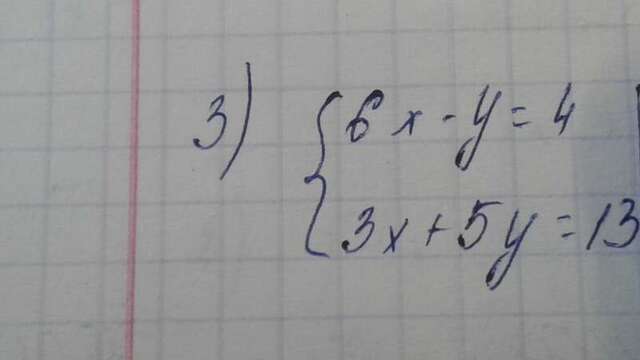 3) { 6x - y = 4
3x + 5y = 13